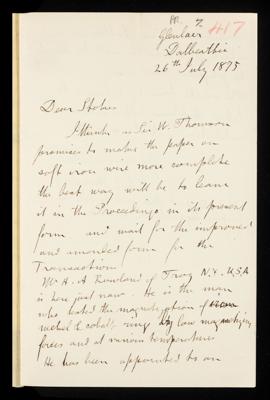 RR. 7. 417
Glenlair
Dalbeattie
26th July 1875
Dear Stokes
I think as Sir W. Thomson
promises to make the paper on
soft iron wire more complete
the best way will be to leave
it in the Proceedings in its present
form and wait for the improved
and amended form for the
Transactions
Mr H. A Rowland of Troy N.Y. U.S.A
is here just now. He is the man
who tested the magnetization of
nickel & cobalt rings by low magnetizing
forces and at various temperatures
He has been appointed to an